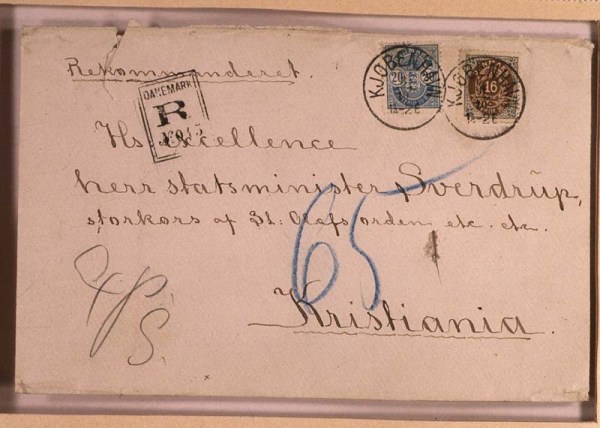 Rekommanderet.
KJØBENHAVN
20
KJØBENHAVN
16
DANEMARK
R
Hs. excellence
herr statsminister Sverdrup,
storkors af St: Olafs orden etc. etc.
65
Kristiania.